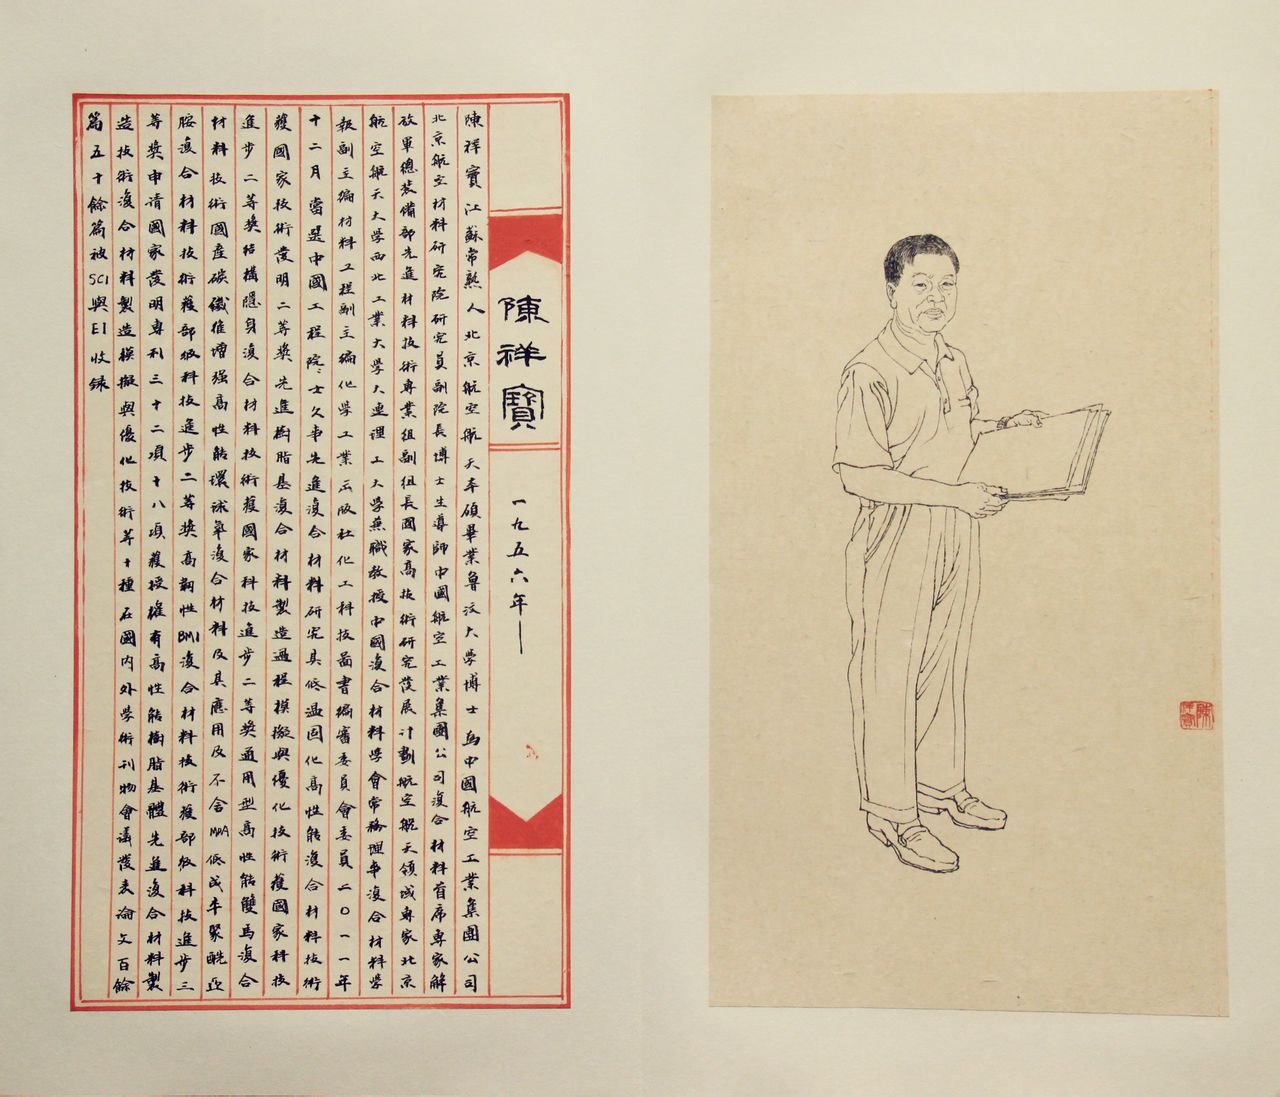 陳祥寶
一九五六年—
陳祥寶江蘇常熟人北京航空航天本碩畢業魯汶大學博士為中國航空工業集團公司
北京航空材料研究院研究員副院長博士生導師中國航空工業集團公司復合材料首席專家解
放軍總裝備部先進材料技術專業組副組長國家高技術研究發展計劃航空航天領域專家北京
航空航天大學西北工業大學大連理工大學兼職教授中國復合材料學會常務理事復合材料學
報副主編材料工程副主編化學工業出版社化工科技圖書編審委員會委員二〇一一年
十二月當選中國工程院院士久事先進復合材料研究具低溫固化高性能復合材料技術
獲國家技術發明二等獎先進樹脂基復合材料製造過程模擬與優化技術獲國家科技
進步二等獎結構隱身復合材料技術獲國家科技進步二等獎通用型高性能雙馬復合
材料技術國產碳纖維增强高性能環球氧復合材料及其應用及不含MDA低成本聚酰亞
胺復合材料技術獲部級科技進步二等獎高韌性BMI復合材料技術獲部級科技進步三
等獎申请國家發明專利三十二項十八項獲授權有高性能樹脂基體先進復合材料製
造技術復合材料製造模擬與優化技術等十種在國內外學術刊物會議發表論文百餘
篇五十餘篇被SCI與EI收錄
陳祥寶